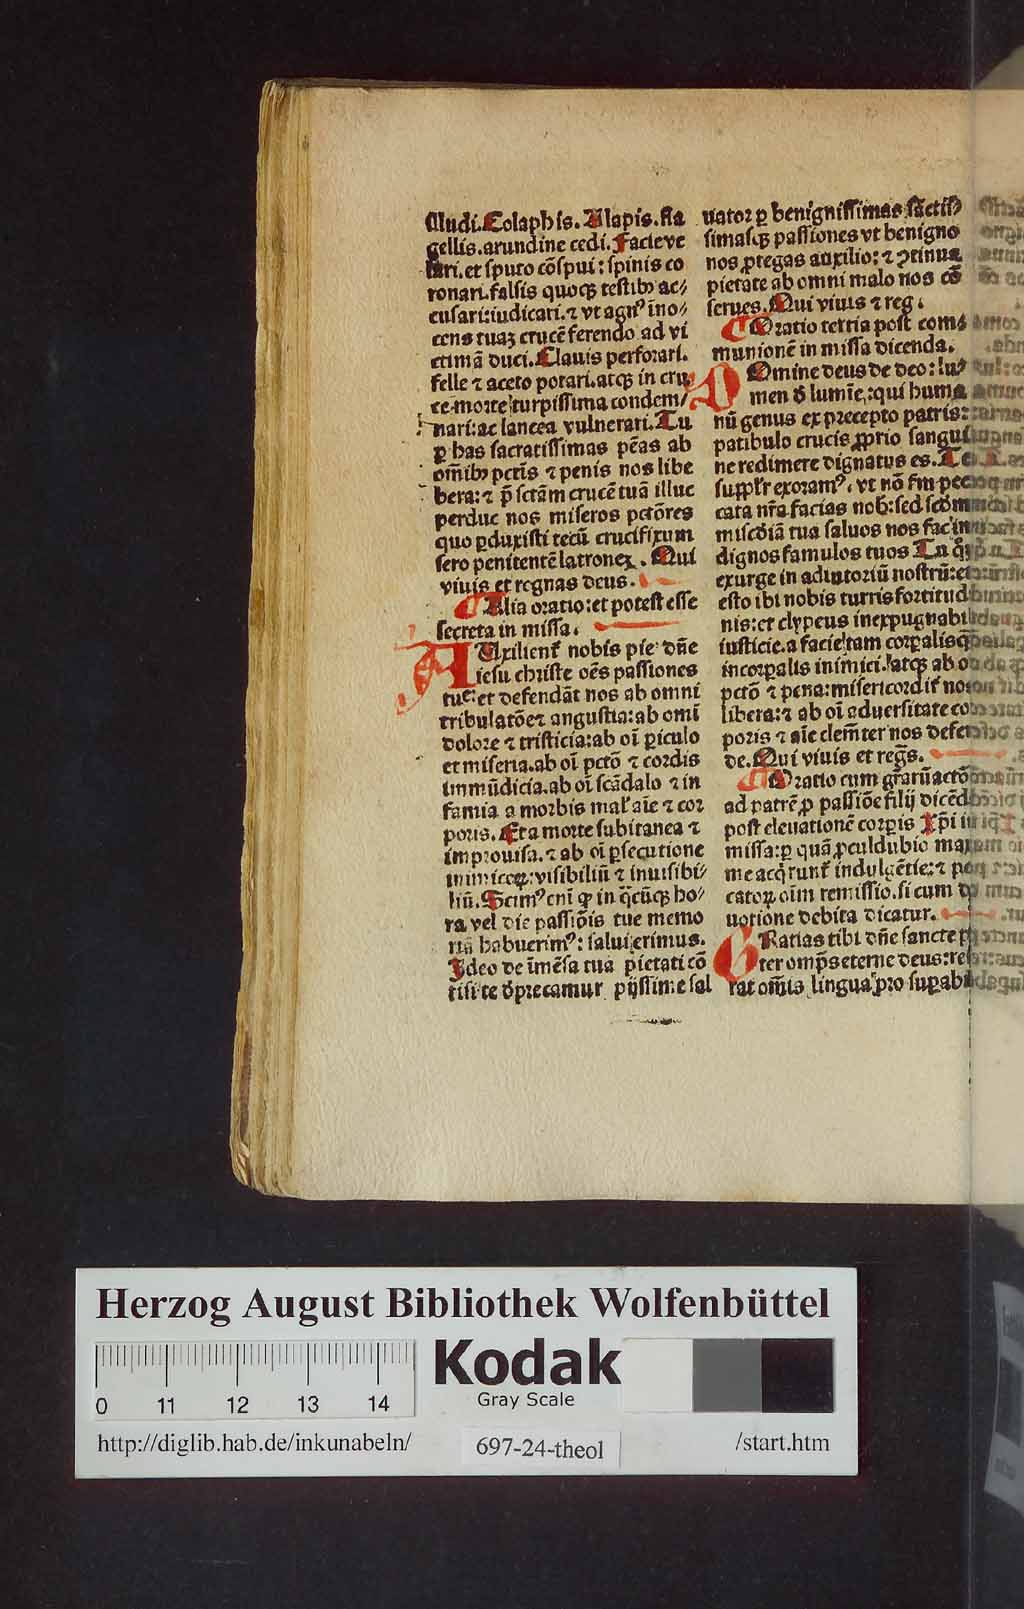 illudi. Colaphis. Alapis. fla
gellis. arundine cedi. Facie ve
lari. et sputo cõspui: spinis co
ronari. falsis quoqȝ testibȝ ac⸗
cusari: iudicari. ⁊ vt agnꝰ ĩno⸗
cens tuaȝ crucẽ ferendo ad vi
ctimã duci. Clauis perforari.
felle ⁊ aceto potari. atqȝ in cru
ce morte turpissima condem⸗
nari: ac lancea vulnerari. Tu
ꝑ has sacratissimas pẽas ab
om̃ibȝ pctĩs ⁊ penis nos libe
bera: ⁊ ꝑ sctãm crucẽ tuã illuc
perduc nos miseros pctõres
quo ꝑduxisti tecũ crucifixum
sero penitentẽ latroneȝ. Qui
viuis et regnas deus.
Alia oratio: et potest esse
secreta in missa.
AUxilient᷑ nobis pie dñe
iesu christe oẽs passiones
tue: et defendãt nos ab omni
tribulatõe ⁊ angustia: ab omĩ
dolore ⁊ tristicia: ab oĩ ꝑiculo
et miseria. ab oĩ pctõ ⁊ cordis
immũdicia. ab oĩ scãdalo ⁊ in
famia a morbis mal᷑ aĩe ⁊ cor
poris. Et a morte subitanea ⁊
improuisa. ⁊ ab oĩ ꝑsecutione
inimicoꝝ: visibiliũ ⁊ inuisibi⸗
liũ. Scimꝰ eni ꝙ in q̃cũqȝ ho⸗
ra vel die passiõis tue memo
riã habuerimꝰ: salui erimus.
Ideo de ĩmẽsa tua pietati cõ
tisi te dp̃recamur pijssime sal
uator ꝑ benignissimas sãctis⸗
simasqȝ passiones vt benigno
nos ꝓtegas auxilio: ⁊ ꝯtinua
pietate ab omni malo nos cõ
serues. Qui viuis ⁊ reg.
Oratio tertia post com⸗
munionẽ in missa dicenda.
DOmine deus de deo: lu⸗
men d̃ lumĩe: qui huma
nũ genus ex precepto patris:
patibulo crucis ꝓprio sangui
ne redimere dignatus es. Te
suppl᷑r exoramꝰ. vt nõ fm pec
cata nr̃a facias nob: sed scdm
miscdiã tua saluos nos fac in
dignos famulos tuos Tu q̃s
exurge in adiutoriũ nostrũ: et
esto ibi nobis turris fortitud
nis: et clypeus inexpugnabil
iusticie. a facie tam corꝑalisq̃
incorꝑalis inimici. atqȝ ab o
pctõ ⁊ pena: misericordit᷑ nos
libera: ⁊ ab oĩ aduersitate co
poris ⁊ aĩe clem̃ter nos defe
de. Qui viuis et reg̃s.
Oratio cum gr̃arũactõ
ad patrẽ ꝓ passiõe filij dicẽd
post eleuationẽ corꝑis Xp̃i in
missa: ꝑ quã ꝓculdubio max
me acq̃runt᷑ indulgẽtie: ⁊ pec
catoꝝ oĩm remissio. si cum de
uotione debita dicatur.
GRatias tibi dñe sancte p
ter omp̃s eterne deus: ref
rat om̃is lingua ꝓ suꝑab
Herzog August Bibliothek Wolfenbüttel
0 11 12 13 14
Kodak
Gray Scale
http://diglib.hab.de/inkunabeln/ 697-24-theol /start.htm